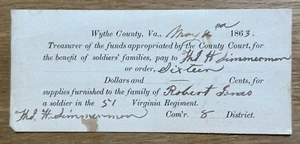 Wythe County, Va., May 1863.
Treasurer of the funds appropriated by the County Court, for
the benefit of soldiers' families, pay to Thd H Simmerman
or order, Sixteen
Dollars and Cents, for
supplies furnished to the family of Robert
a soldier in the 51 Virginia Regiment.
Thd. H. Simmerman Com'r. 8 District.